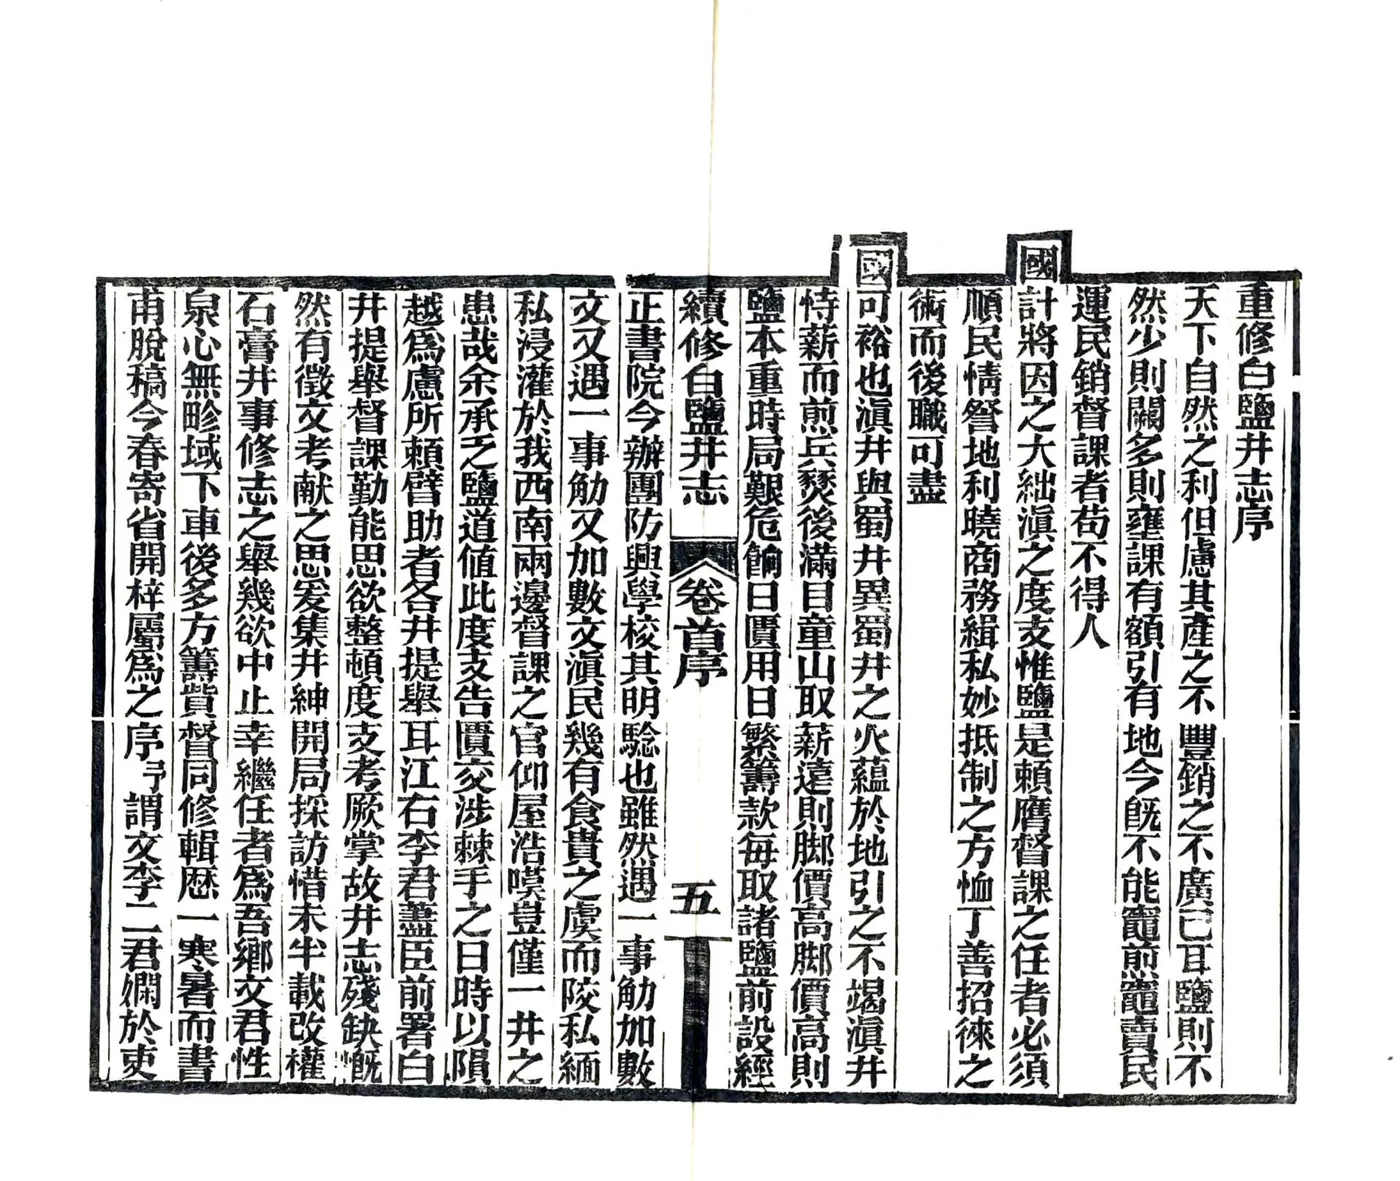 重修白鹽井志序
天下自然之利但慮其產之不豐銷之不廣已耳鹽則不
然少則闕多則壅課有額引有地今旣不能竈煎竈賣民
運民銷督課者苟不得人
國計將因之大絀滇之度支惟鹽是賴膺督課之任者必須
順民情詧地利曉商務緝私妙抵制之方恤丁善招徠之
術而後職可盡
國可裕也滇井與蜀井異蜀井之火蘊於地引之不竭滇井
恃薪而煎兵燹後滿目童山取薪遠則脚價高脚價高則
鹽本重時局艱危餉日匱用日繁籌款每取諸鹽前設經
續修白鹽井志
卷首序
五
正書院今辦團防興學校其明騐也雖然遇一事觔加數
文又遇一事觔又加數文滇民幾有食貴之虞而陵私緬
私浸灌於我西南兩邊督課之官仰屋浩嘆豈僅一井之
患哉余承乏鹽道値此度支告匱交涉棘手之日時以隕
越爲慮所賴臂助者各井提舉耳江右李君藎臣前署白
井提舉督課勤能思欲整頓度支考厥掌故井志殘缺慨
然有徵文考献之思爰集井紳開局採訪惜未半載改權
石膏井事修志之舉幾欲中止幸繼任者爲吾鄉文君性
泉心無畛域下車後多方籌貲督同修輯歷一寒暑而書
甫脫稿今春寄省開梓屬爲之序予謂文李二君嫻於吏